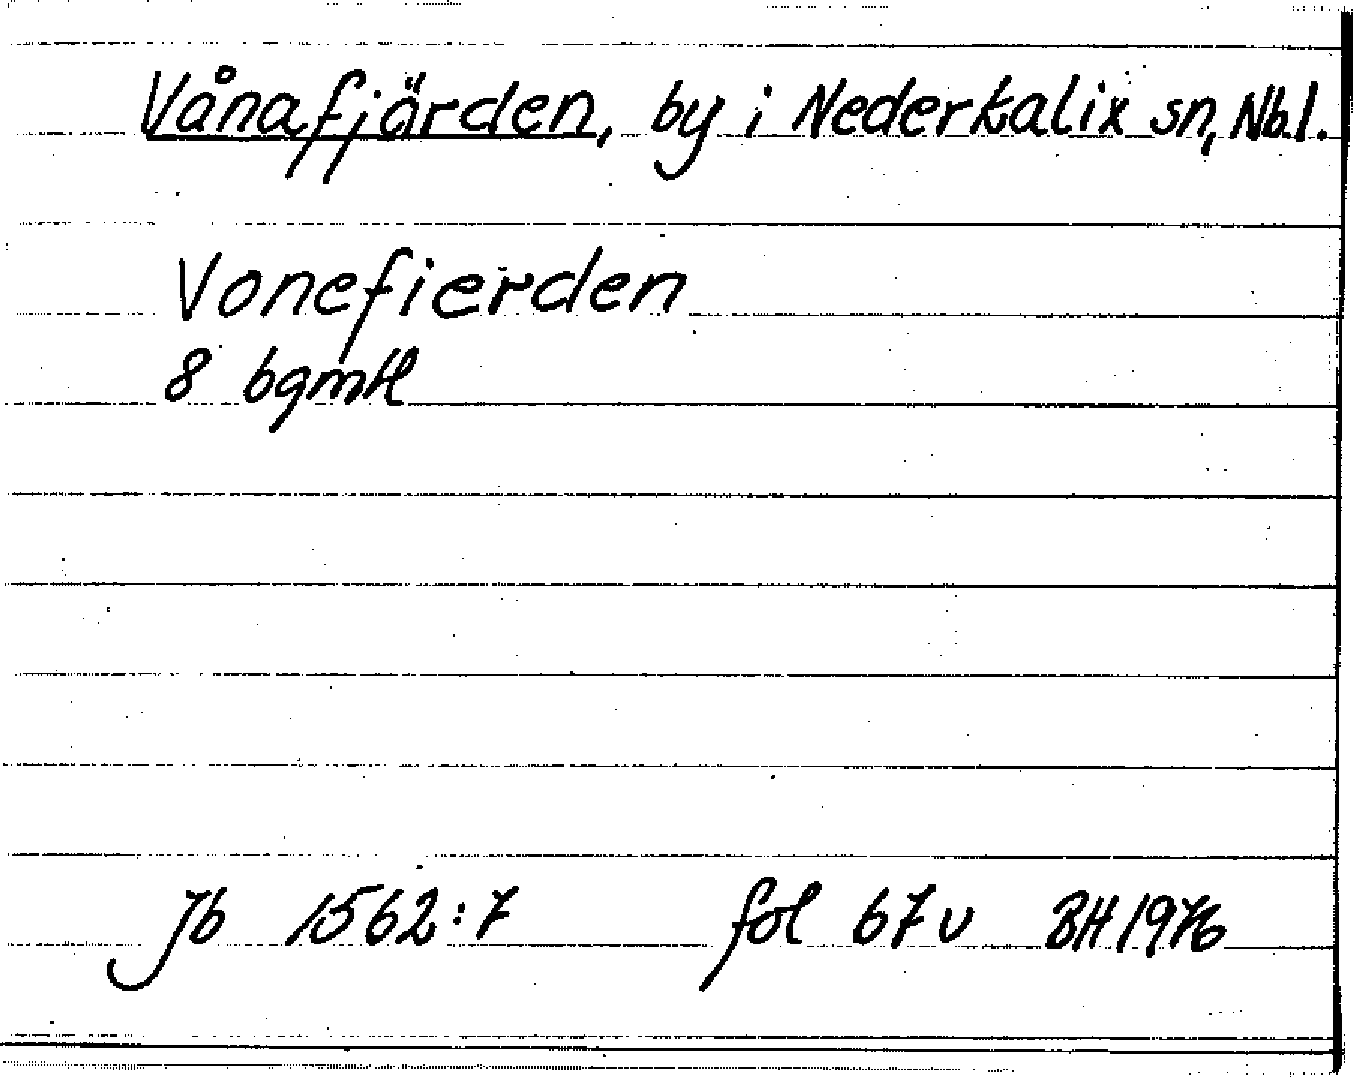 Vånafjärden, by i Nederkalix sn, Nb.l.
Vonefierden
8 bgmtl
Jb 1562:7 fol 67 v BH 1976